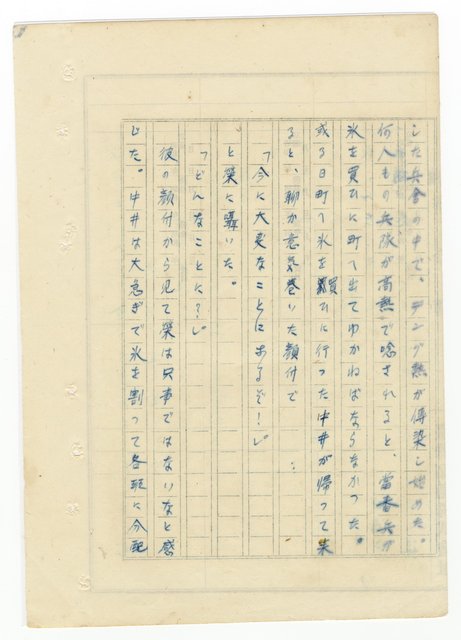 した兵舎の中で、デング熱が傳染し始めた。
何人もの兵隊が高熱で唸されると、當番兵が
氷を買ひに町へ出てゆかねばならなかった。
或る日町へ氷を買ひに行った中井が帰って来
ると、聊か意気巻いた顔付で
「今に大変なことになるぞ！」
と榮に囁いた。
「どんなことに？」
彼の顔付から見て榮は只事ではないなと感
じた。中井は大急ぎで氷を割って各班に分配